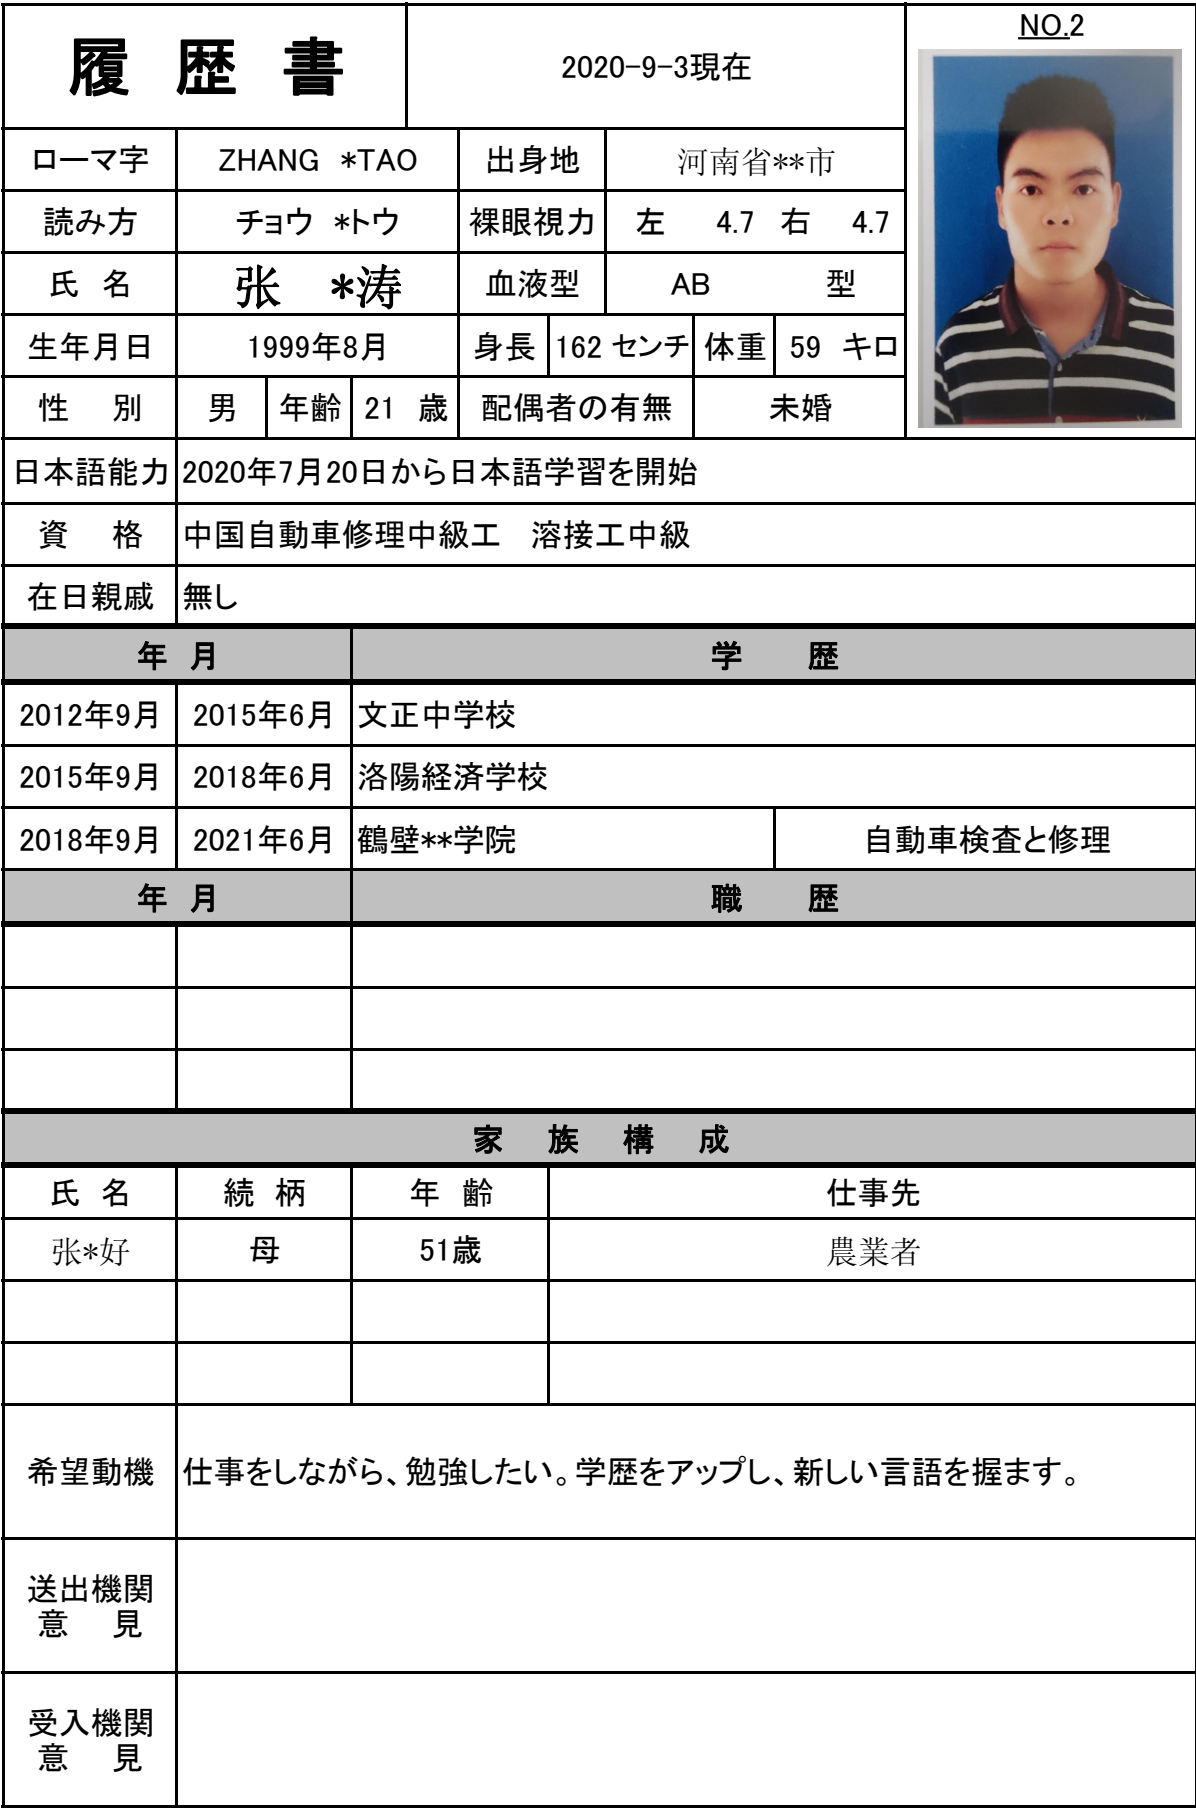 履 歴 書
2020-9-3現在
NO.2
ローマ字 ZHANG *TAO 出身地 河南省**市
読み方 チョウ *トウ 裸眼視力 左 4.7 右 4.7
氏 名 张 *涛 血液型 AB 型
生年月日 1999年8月 身長 162 センチ 体重 59 キロ
性 別 男 年齢 21 歳 配偶者の有無 未婚
日本語能力 2020年7月20日から日本語学習を開始
資 格 中国自動車修理中級工 溶接工中級
在日親戚 無し
年 月 学 歴
2012年9月 2015年6月 文正中学校
2015年9月 2018年6月 洛陽経済学校
2018年9月 2021年6月 鶴壁**学院 自動車検査と修理
年 月 職 歴
家 族 構 成
氏 名 続 柄 年 齢 仕事先
张*好 母 51歳 農業者
希望動機 仕事をしながら、勉強したい。学歴をアップし、新しい言語を握ます。
送出機関
意 見
受入機関
意 見